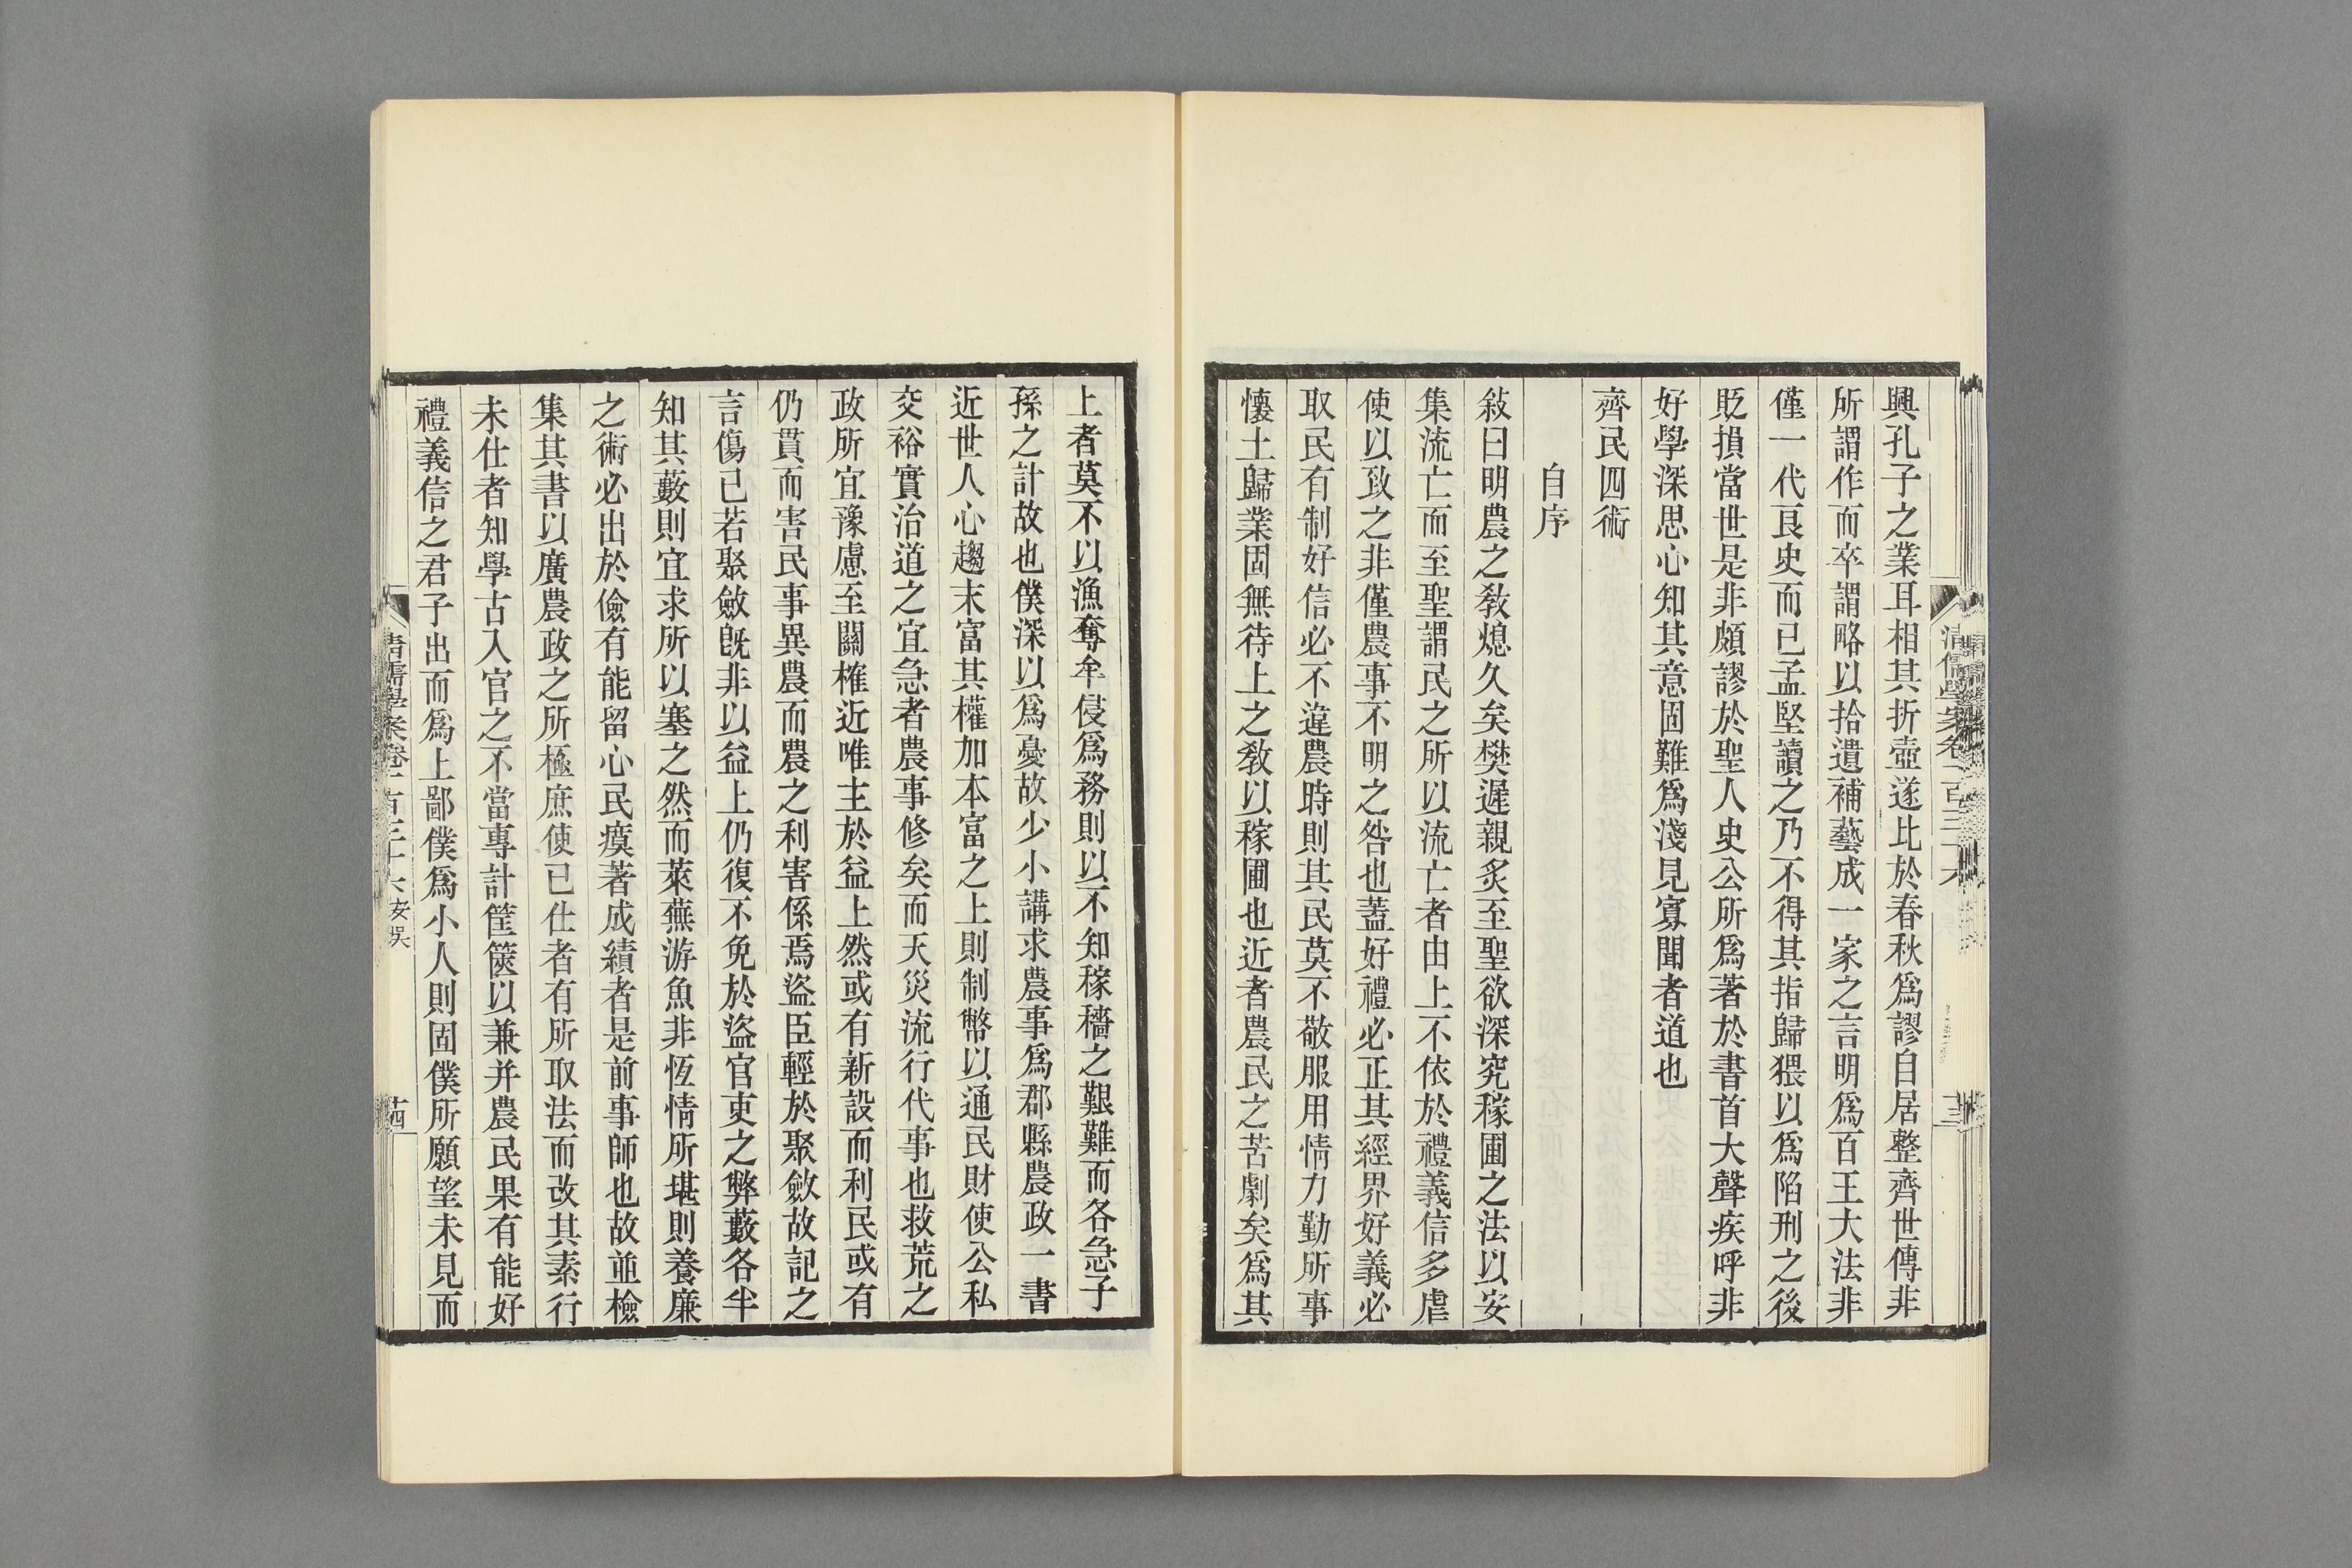 興孔子之業耳相其折壺遂比於春秋爲謬自居整齊世傳非
所謂作而卒謂略以拾遺補藝成一家之言明爲百王大法非
僅一代良史而已孟堅讀之乃不得其指歸猥以爲陷刑之後
貶損當世是非頗謬於聖人史公所爲著於書首大聲疾呼非
好學深思心知其意固難爲淺見寡聞者道也
齊民四術
自序
敍曰明農之敎熄久矣樊遲親炙至聖欲深究稼圃之法以安
集流亡而至聖謂民之所以流亡者由上不依於禮義信多虐
使以致之非僅農事不明之咎也蓋好禮必正其經界好義必
取民有制好信必不違農時則其民莫不敬服用情力勤所事
懷土歸業固無待上之敎以稼圃也近者農民之苦劇矣爲其
上者莫不以漁奪牟侵爲務則以不知稼穡之艱難而各急子
孫之計故也僕深以爲憂故少小講求農事爲郡縣農政一書
近世人心趨末富其權加本富之上則制幣以通民財使公私
交裕實治道之宜急者農事修矣而天災流行代事也救荒之
政所宜豫慮至關榷近唯主於益上然或有新設而利民或有
仍貫而害民事異農而農之利害係焉盜臣輕於聚斂故記之
言傷已若聚斂旣非以益上仍復不免於盜官吏之弊藪各半
知其藪則宜求所以塞之然而萊蕪游魚非恆情所堪則養廉
之術必出於儉有能留心民瘼著成績者是前事師也故並檢
集其書以廣農政之所極庶使已仕者有所取法而改其素行
未仕者知學古入官之不當專計筐篋以兼并農民果有能好
禮義信之君子出而爲上鄙僕爲小人則固僕所願望未見而
清儒學案卷一百三十六 安吳
十四